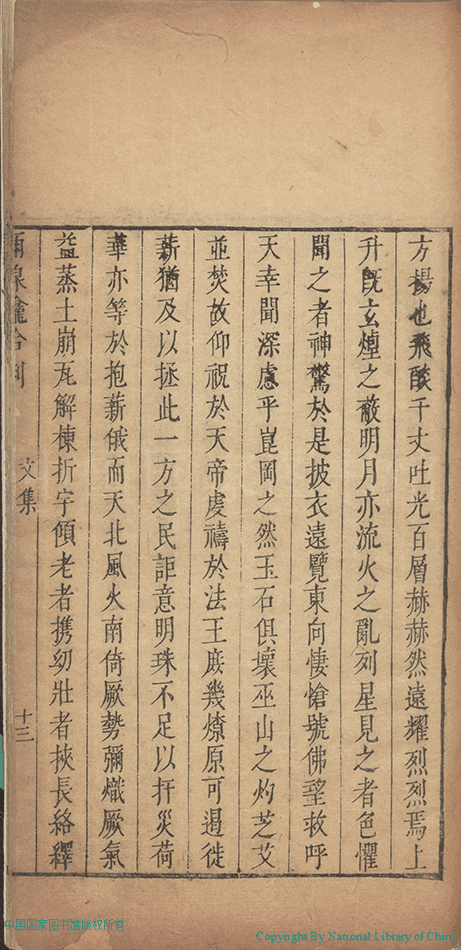 方揚也飛燄千丈吐光百層赫赫然遠耀烈烈焉上
升旣玄煙之蔽明月亦流火之亂列星見之者色懼
聞之者神驚於是披衣遠覽東向悽愴號佛望救呼
天幸聞深慮乎崑岡之然玉石俱壞巫山之灼芝艾
並焚故仰祝於天帝虔禱於法王庶幾燎原可遏徙
薪猶及以拯此一方之民詎意明珠不足以扞災荷
華亦等於抱薪俄而天北風火南倚厥勢彌熾厥氣
益蒸土崩瓦解棟折宇傾老者攜幼壯者挾長絡繹
文集
十三
中国国家图书馆版权所有
Copyright By National Library of China